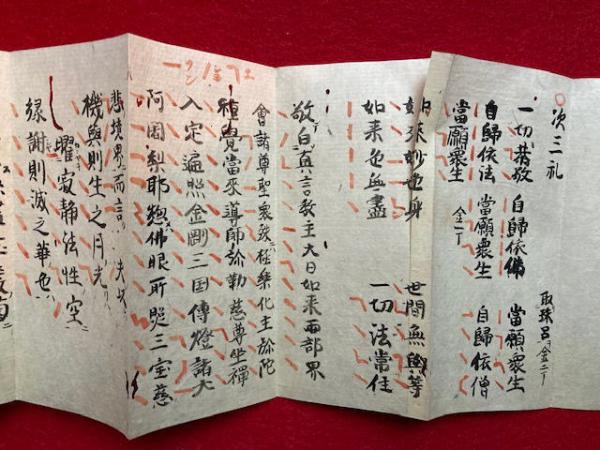 次三礼
取珠呂 金二丁
一切恭敬 自歸依佛 當願衆生
自歸依法 當願衆生 自歸依僧
當願衆生 金一丁
如来妙色身 世間無與等
如来色無盡 一切法常住
敬白真言教主大日如来両部界
會諸尊聖衆殊極樂化主弥陀
種覺當来導師弥勒慈尊坐禪
入定遍照金剛三国傳燈諸大
阿闍梨耶惣佛眼所照三宝慈
悲境界而言 夫以
機興則生之月光
曜寂静法性空
縁謝則滅之華色